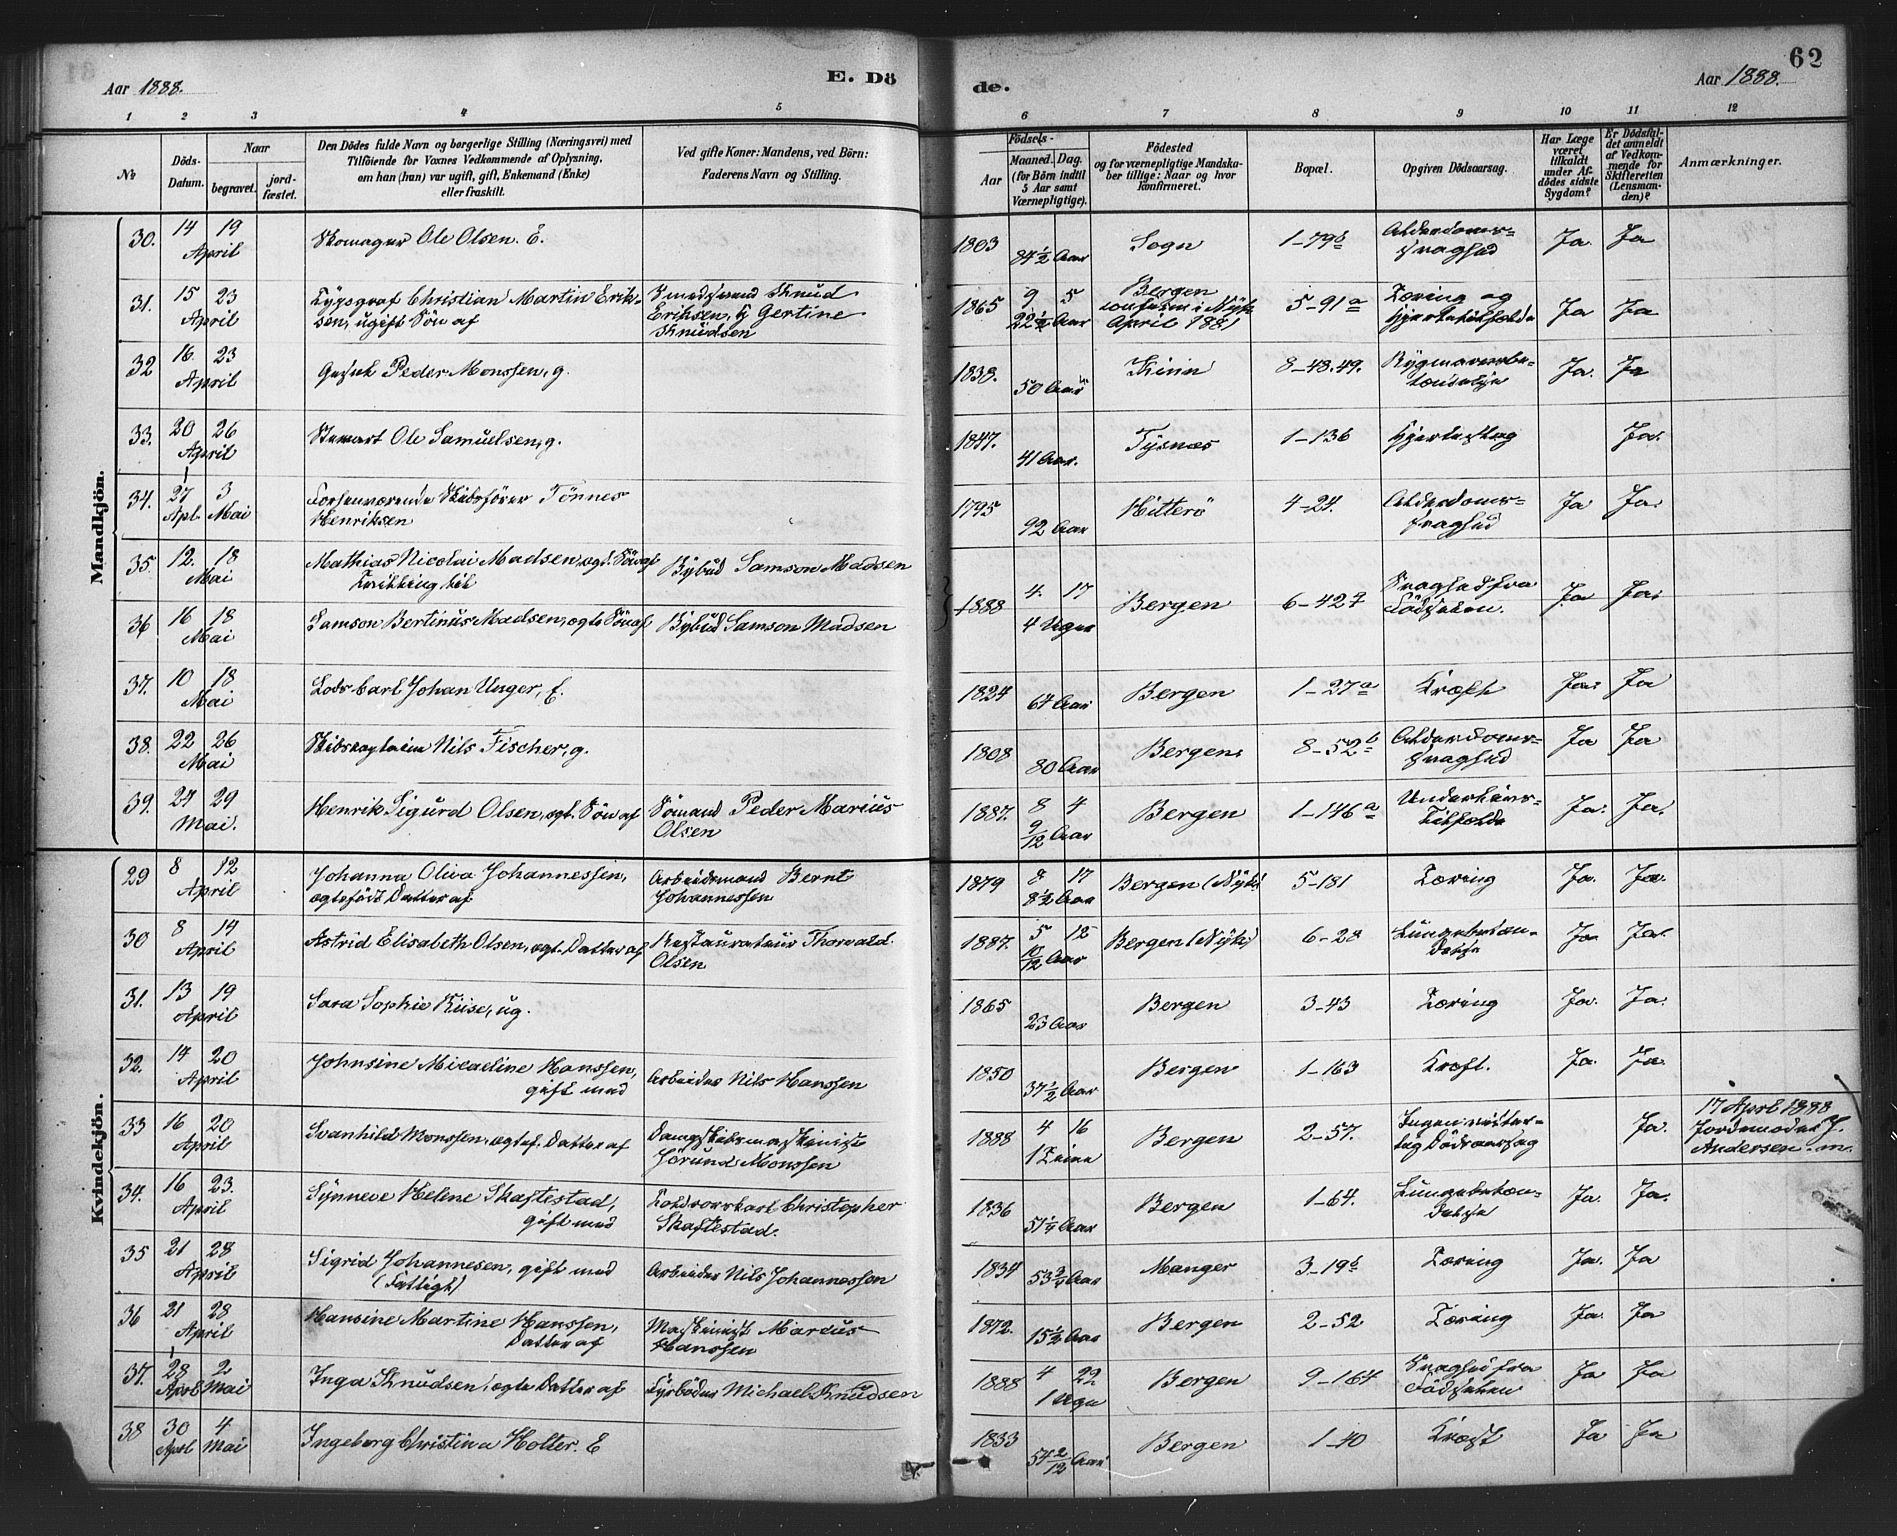 62
Aar 1888.
E. Dö
de.
Aar 1888.
1 2 3 4 5 6 7 8 9 10 11 12
No
Döds-Datum.
Naar
begravet.
jord-fæstet.
Den Dödes fulde Navn og borgerlige Stilling (Næringsvei) med
Tilföiende for Voxnes Vedkommende af Oplysning,
om han (hun) var ugift, gift, Enkemand (Enke)
eller fraskilt.
Ved gifte Koner: Mandens, ved Börn:
Faderens Navn og Stilling.
Födsels-
Aar
Maaned. Dag.
(for Börn indtil
5 Aar samt
Værnepligtige).
Födested
og for værnepligtige Mandska-
ber tillige: Naar og hvor
konfirmeret.
Bopæl.
Opgiven Dödsaarsag.
Har Læge
været
tilkaldt
under Af-
dödes sidste
Sygdom?
Er Dödsfal-
det anmeldt
af Vedkom-
mende for
Skifteretten
(Lensman-
den)?
Anmærkninger.
Mandkjön.
30. 14 19 April Skomager Ole Olsen. E. 1803 84 1/2 Aar Sogn 1-79b Alderdoms-svaghed Ja. Ja
31. 15 23 April Typograf Christian Martin Erik-
sen, ugift Sön af
Smedsvend Knud
Eriksen, og Gertine
Knudsen
1865 9 5 22 1/2 Aar Bergen
confirm i Nyk.
April 1881
5-91a Tæring og
Hjertetilfælde Ja Ja
32 16. 23 April Peder Monssen, g. 1838. 50 Aar Kinn 8-48.49. Rygmarvsbe-
tændelse Ja. Ja
33. 20 26 April Stewart Ole Samuelsen, g. 1847. 41 Aar. Tysnæs 1-136 Hjerteslag Ja.
34. 27 Apl. 3 Mai Forhenværende Skibsförer Tönnes
Henriksen 1795 92 Aar Hitterö 4-24. Alderdoms-
svaghed Ja Ja.
35. 12. 18 Mai Mathias Nicolai Madsen, ægt. Sön af
Tvilling til
Bybud Samson Madsen
36 16 18 Mai Samson Bertinus Madsen, ægte Sön af Bybud Samson Madsen
1888 4. 17 4 Uger Bergen 6-42 Svaghed fra
Födselen. Ja Ja.
37. 10 18 Mai Lods Carl Johan Unger, E. 1824 64 Aar Bergen 1-27a Kræft Ja. Ja
38. 22 26 Mai Skibskaptein Nils Fischer, g. 1808 80 Aar Bergen 8-52b Alderdoms-
svaghed Ja Ja
39. 27 29 Mai. Henrik Sigurd Olsen, ægt. Sön af Sömand Peder Marius
Olsen 1887. 8 4 9/12 Aar Bergen 1-146a Underlivs-
Tilfælde Ja. Ja.
Kvindekjön.
29 8 12 April Johanna Oliva Johannessen,
ægtefödt Datter af
Arbeidsmand Bernt
Johannessen
1879 8 17 8 1/2 Aar Bergen (Nyk) 5-181 Tæring Ja. Ja.
30 8 14 April Astrid Elisabeth Olsen, ægt. Datter af Restaurateur Thorvald
Olsen 1887. 5 12 10/12 Aar Bergen (Nyk) 6-28 Lungebetæn-
delse Ja Ja.
31. 13 19 April Sara Sophie Riise, ug. 1865 23 Aar Bergen 3-43 Tæring Ja. Ja.
32. 14 20 April Johnsine Micadine Hanssen,
gift med
Arbeider Nils Hanssen 1850 37 1/2 Aar Bergen 1-163 Kræft. Ja. Ja.
33 16 20 April Svanhild Monssen, ægtef. Datter af Dampskibsmaskinist
Jörund Monssen 1888 4 16 1 Time Bergen 2-57. Ingen
Dödsaarsag Ja. 17 April 1888
Jordemoder J.
Andersen
34. 16 23. April Synneve Helene Skaftestad,
gift med
Christopher
Skaftestad. 1836 51 1/4 Aar Bergen 1-64. Lungebetæn-
delse Ja. Ja.
35 21 28 April Sigrid Johannesen, gift med
(Fattigt)
Arbeider Nils Johannessen 1834 53 3/4 Aar Manger 3-19b Tæring Ja. Ja
36 21 28 April Hansine Martine Hanssen,
Datter af
Maskinist Marcus
Hanssen 1872. 15 1/2 Aar Bergen 2-52 Tæring Ja. Ja
37. 28 April 2 Mai Inga Knudsen, ægte Datter af Fyrböder Michael Knudsen 1888 4 22 1 Uge Bergen 9-164 Svaghed fra
Födselen Ja Ja
38 30 April 4 Mai Ingeborg Christina Holter. E 1833 54 2/12 Aar Bergen 1-40 Kræft Ja Ja